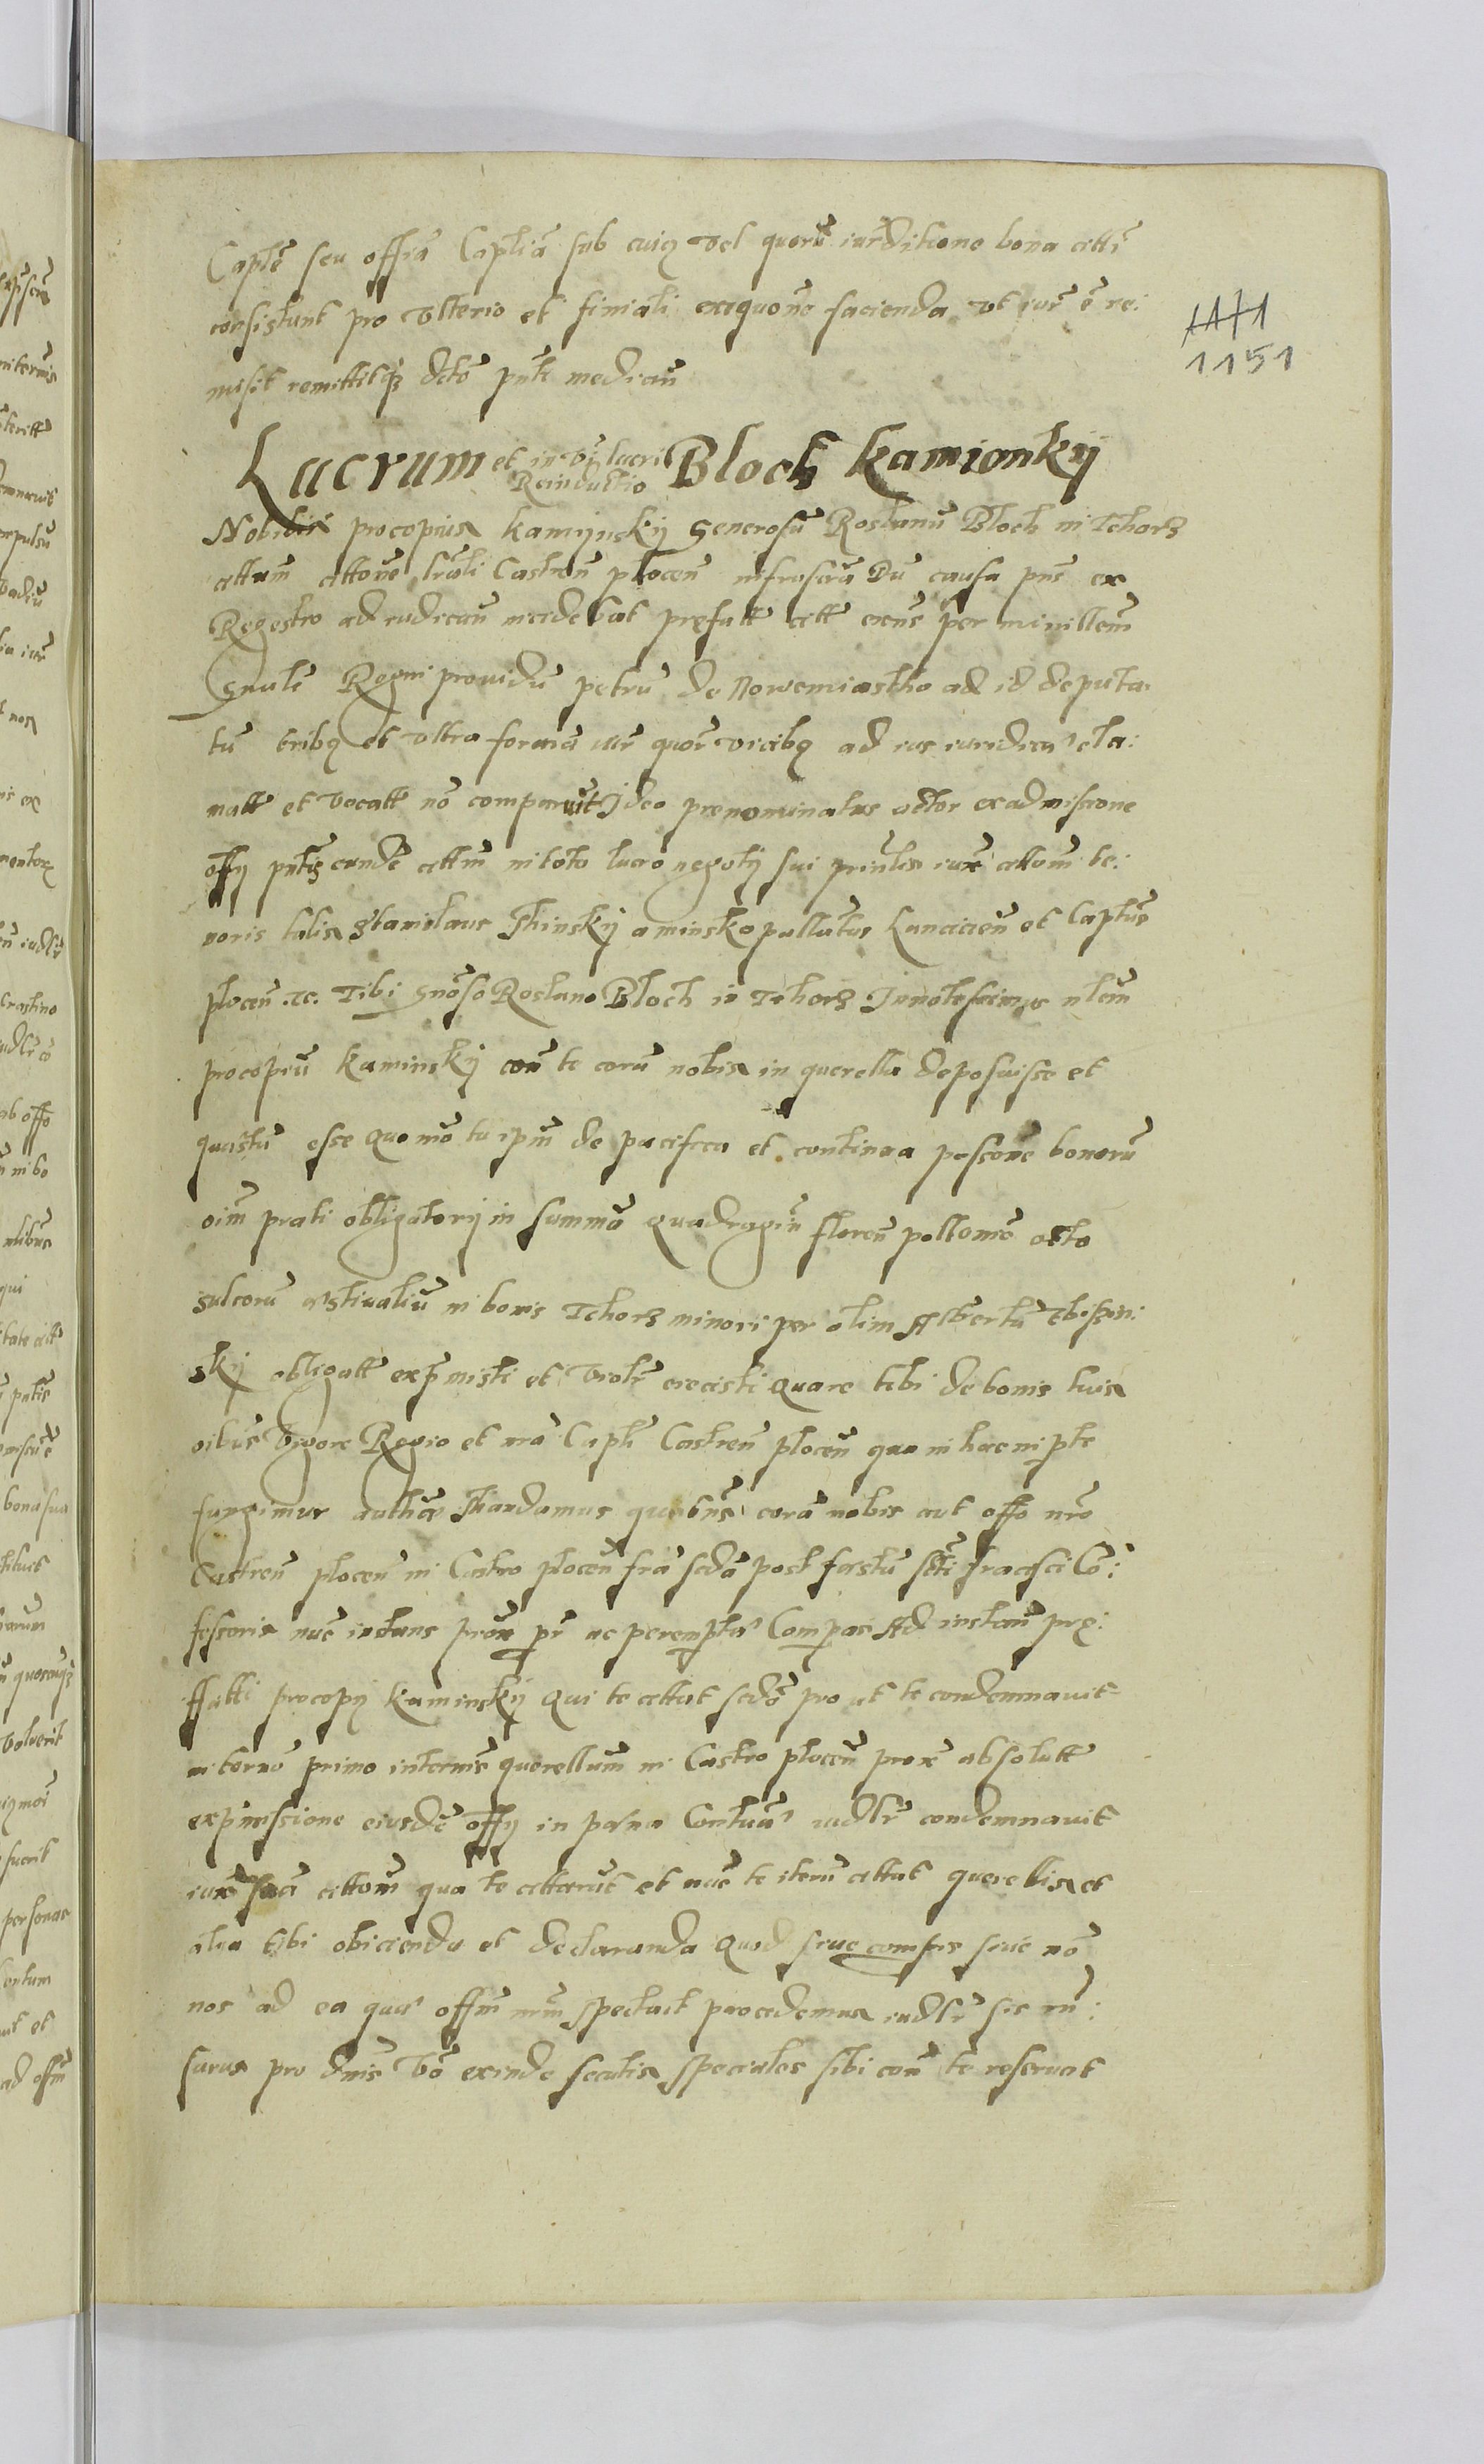 Captẽ seu offiã Captiã sub cuiq vel quorũ iurditione bona citti
consistunt pro vlterio et finiali exequõne facienda vt iur̃ ẽ re:
misit remittitq3 dcto pñti mediañ
1171
1151
Lucrum et in vĩ lucri Reinductio Bloch Kamionkÿ
Nobilis procopius kamijnskij Generosũ Rostanũ Bloch in Tchorz
cittum cittone lrali Castreñ ploceñ infrascrã Dũ causa pñs ex
Regestro ad iudicañ incidebat prefatt citt exeñs per minillem
Gnalẽ Regni prouidũ petrũ de Nowemiastho ad id deputa:
tũ tribq et vltra formã iur̃ quor̃ vicibq ad ius iuridica ela:
matt et vocatt nõ comparuit Ideo prenominatus actor ex admissione
offij pñtis eundẽ cittm in toto lucro negotij sui prinlis iux cittom te:
noris talis Stanislaus Minskij a minsko pallatus Lanciceñ et Captũs
ploceñ .tc. Tibi gnõso Rostano Bloch in Tchorz Innotescimus nlem
procopiũ kaminskij coñ te corã nobis in querella deposuisse et
questũ esse quo mõ tu ipm̃ de pacifica et continua possone bonorũ
oim̃ prati obligatorij in summa quadragiñ floreñ pollonic̃ octo
sulcorũ estiualiũ in bonis Tchorz minori per olim Albertũ
skij obligatt exp̃misti et violr̃ eiecisti quare tibi de bonis tuis
oibus vigore Regio et nrã Capti Castreñ ploceñ qua in hac in pte
fungimur authte Mandamus quatns corã nobis aut offo nrõ
Castreñ ploceñ in Castro ploceñ frã scdã post festũ scti fracisci Cõ:
fessoris nuc̃ instans proxe pr̃ ac perempta Compas Ad instañ pre:
fatti procopij kaminskij qui te cittat scdõ pro ut te condemnauit
in termõ primo intermĩs querellarũ in Castro ploceñ proxe absolutt
exp̃missione eiusdẽ offij in pena Contuã iudlr̃ condemnauit
iux suã cittom qua te cittarat et nuc̃ te iterũ cittat querellis et
alia tibi obicienda et declaranda quod siue compĩs siue nõ
nos ad ea qua offm̃ nrm̃ spectabit procedemus iudlr̃ sis rñ:
surus pro dnis võ exinde secutis speciales sibi coñ te reseruat